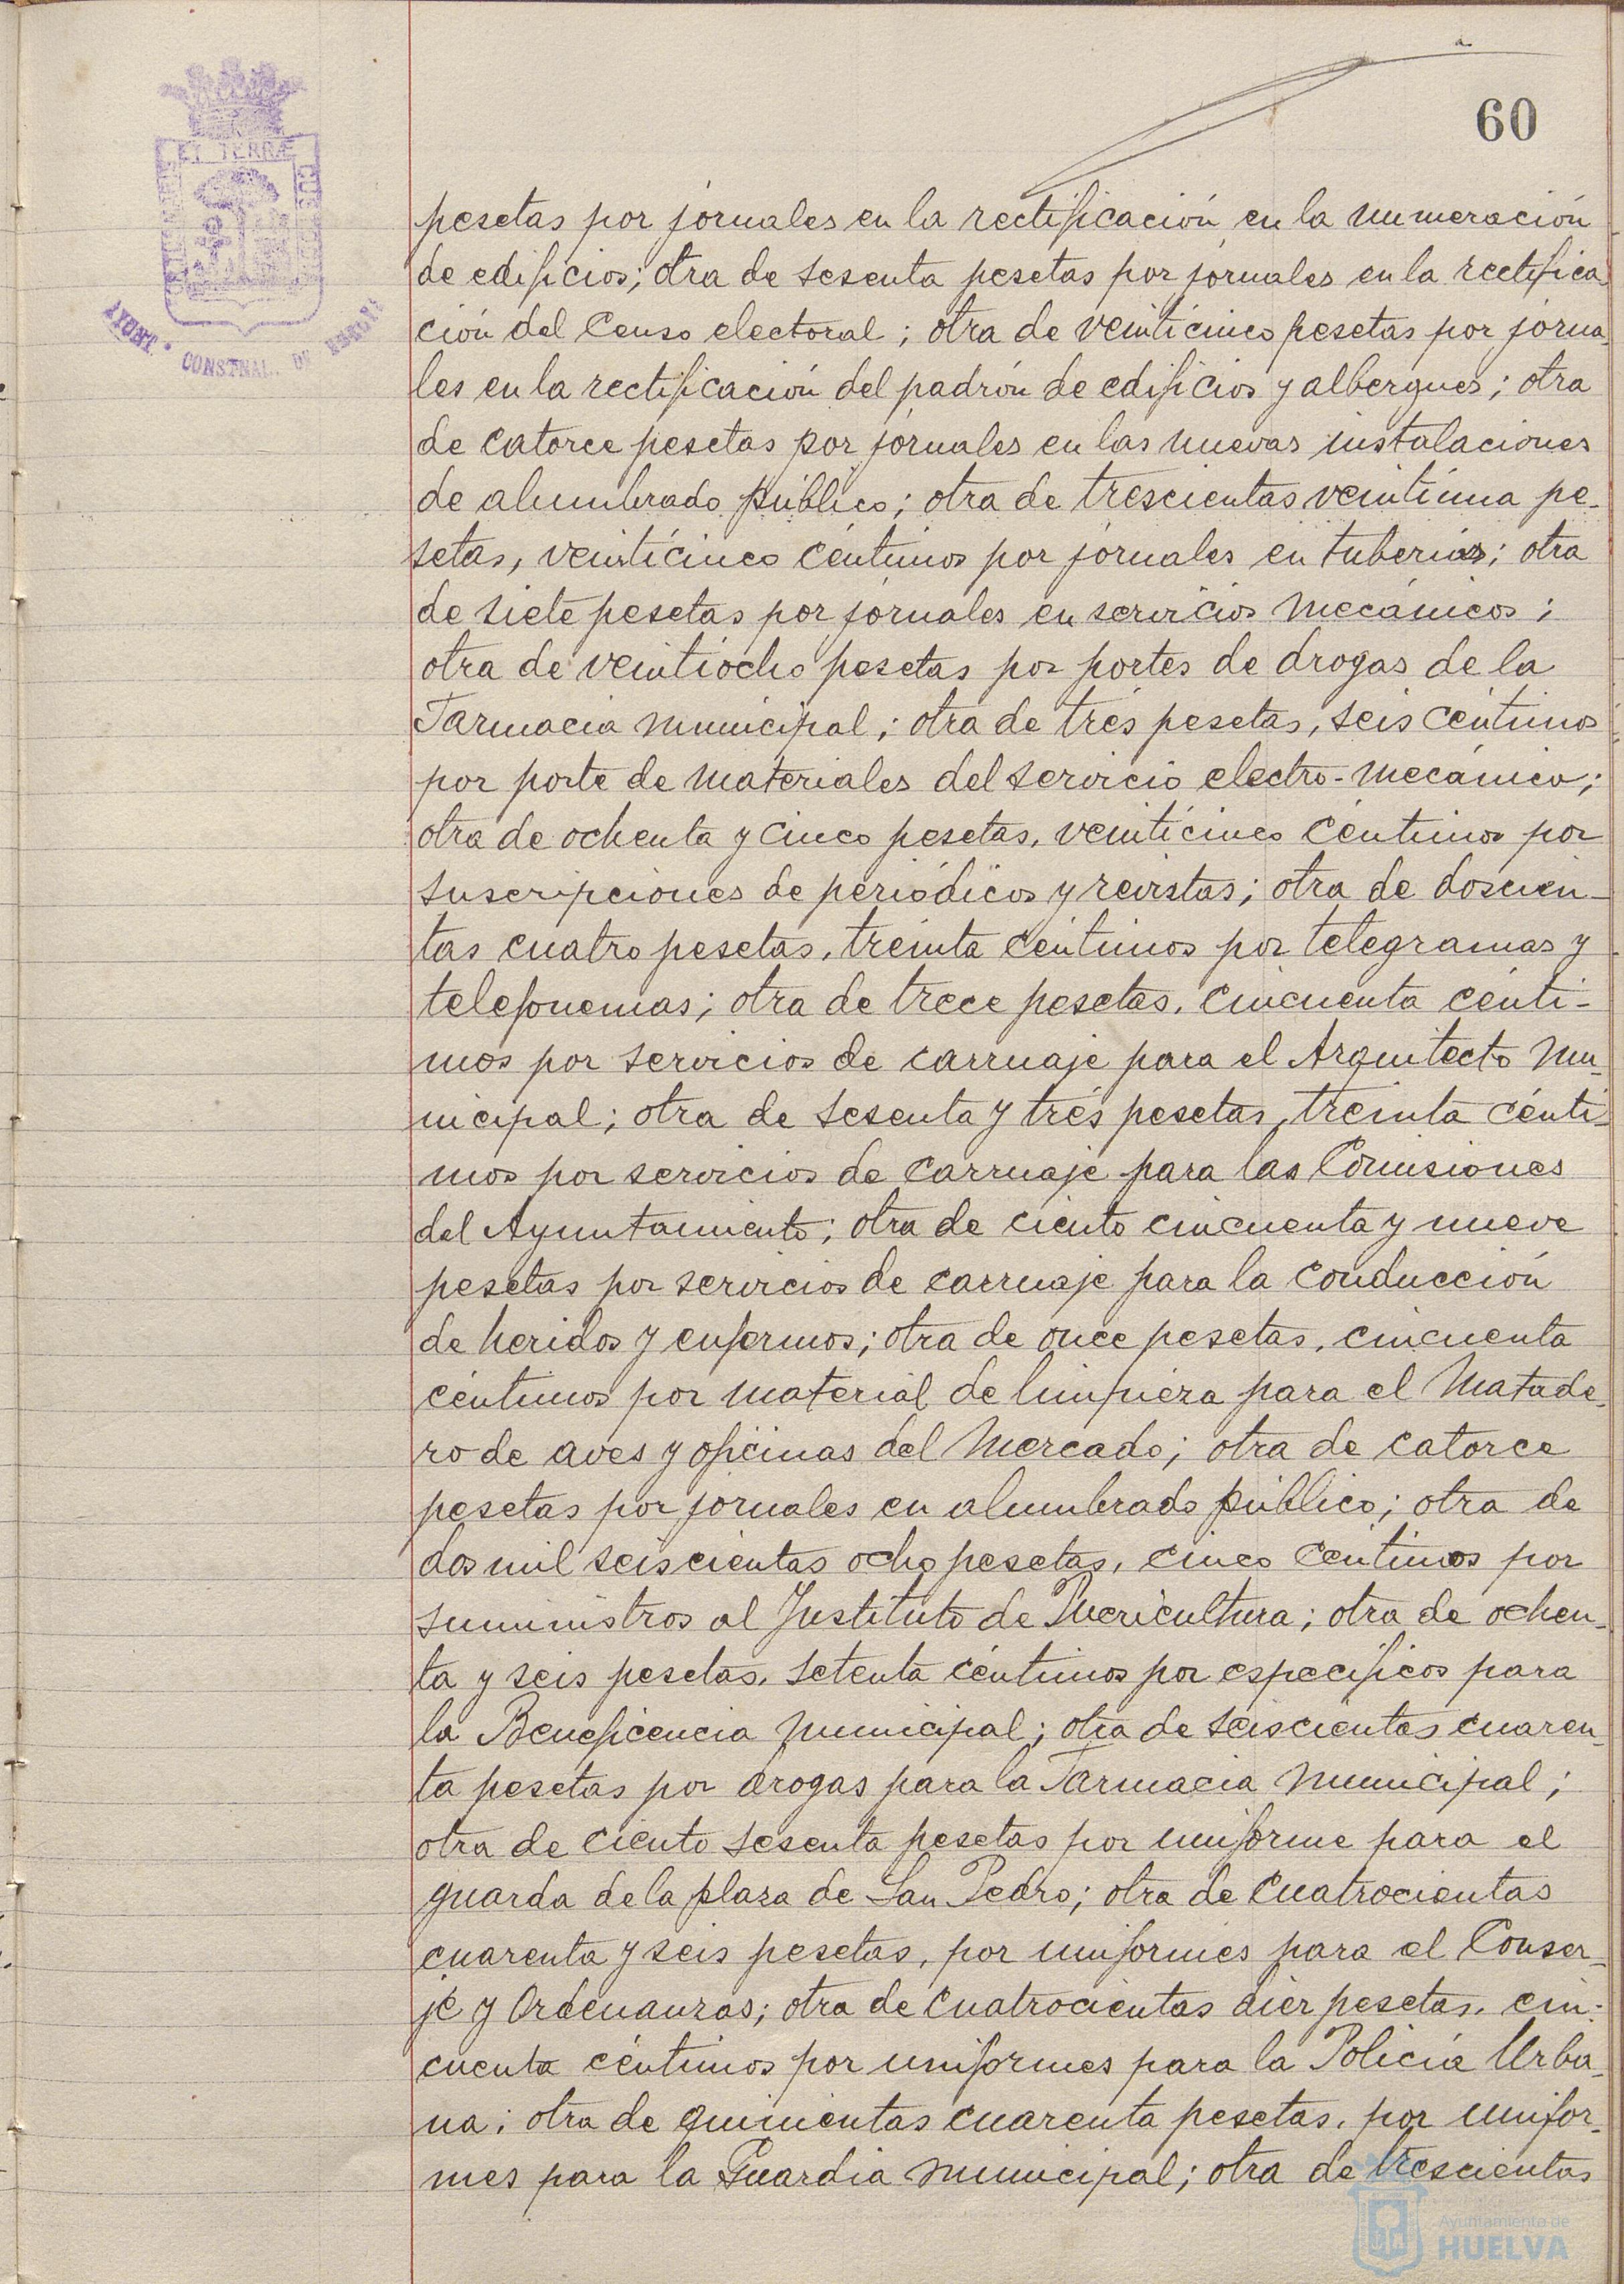 60
ET TERRÆ
AYUNT. CONSTNAL. DE
pesetas por jornales en la rectificación en la numeración
de edificios; otra de sesenta pesetas por jornales en la rectifica
ción del Censo electoral; otra de veinticinco pesetas por jorna
les en la rectificación del padrón de edificios y albergues; otra
de catorce pesetas por jornales en las nuevas instalaciones
de alumbrado público; otra de trescientas veintiuna pe-
setas, veinticinco céntimos por jornales en tuberias; otra
de siete pesetas por jornales en servicios mecánicos;
otra de veintiocho pesetas por portes de drogas de la
Farmacia municipal; otra de tres pesetas, seis céntimos
por porte de materiales del servicio electro-mecánico;
otra de ochenta y cinco pesetas, veinticinco céntimos por
suscripciones de periódicos y revistas; otra de doscien-
tas cuatro pesetas, treinta céntimos por telegramas y
telefonemas; otra de trece pesetas, cincuenta cénti-
mos por servicios de carruaje para el Arquitecto Mu-
nicipal; otra de sesenta y tres pesetas, treinta cénti-
mos por servicios de carruaje para las Comisiones
del Ayuntamiento; otra de ciento cincuenta y nueve
pesetas por servicios de carruaje para la conducción
de heridos y enfermos; otra de once pesetas, cincuenta
céntimos por material de limpieza para el Matade-
ro de aves y oficinas del Mercado; otra de catorce
pesetas por jornales en alumbrado público; otra de
dos mil seiscientas ocho pesetas, cinco céntimos por
suministros al Instituto de Puericultura; otra de ochen-
ta y seis pesetas, setenta céntimos por específicos para
la Beneficencia municipal; otra de seiscientas cuaren-
ta pesetas por drogas para la Farmacia municipal;
otra de ciento sesenta pesetas por uniforme para el
guarda de la plaza de San Pedro; otra de cuatrocientas
cuarenta y seis pesetas, por uniformes para el Conser-
je y Ordenanzas; otra de cuatrocientas diez pesetas, cin-
cuenta céntimos por uniformes para la Policía Urba-
na; otra de quinientas cuarenta pesetas, por unifor-
mes para la Guardia municipal; otra de trescientas
Ayuntamiento de
HUELVA